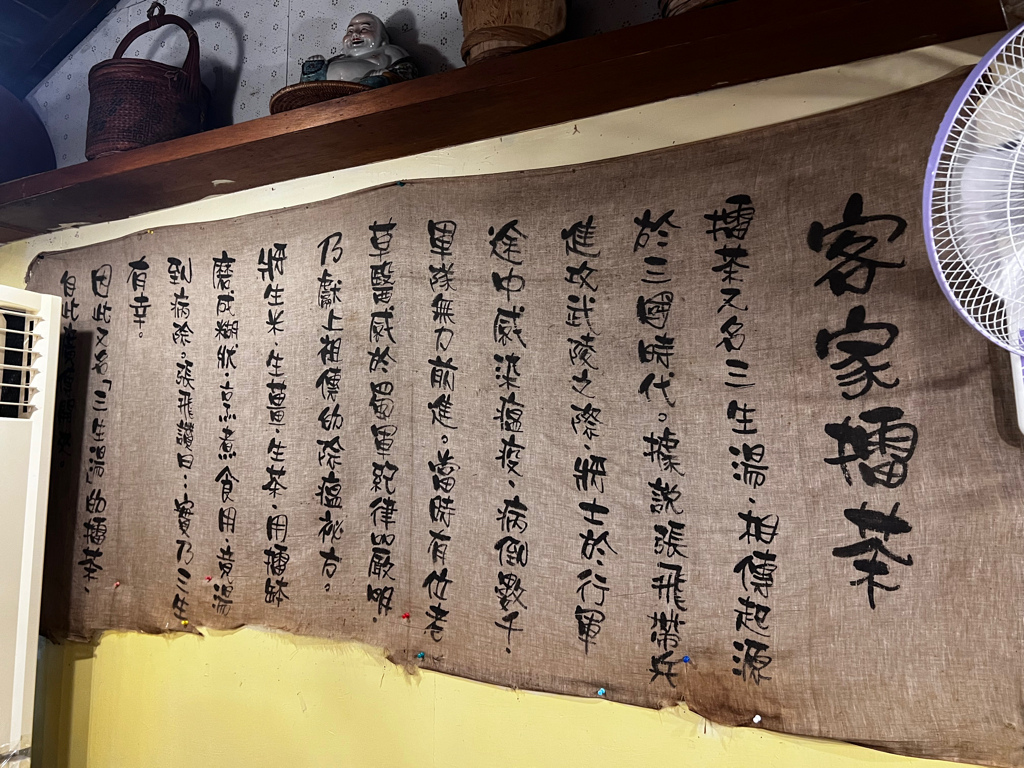 客家擂茶
擂茶又名三生湯．相傳起源
於三國時代。據說張飛帶兵
進攻武陵之際．將士於行軍
途中感染瘟疫．病倒數千．
軍隊無力前進。當時有位老
草醫感於蜀軍紀律嚴明．
乃獻上祖傳的除瘟祕方。
將生米．生薑．生茶．用擂缽
磨成糊狀．烹煮食用．竟湯
到病除。張飛讚曰：實乃三生
有幸。
因此又名「三生湯」的擂茶．
自此